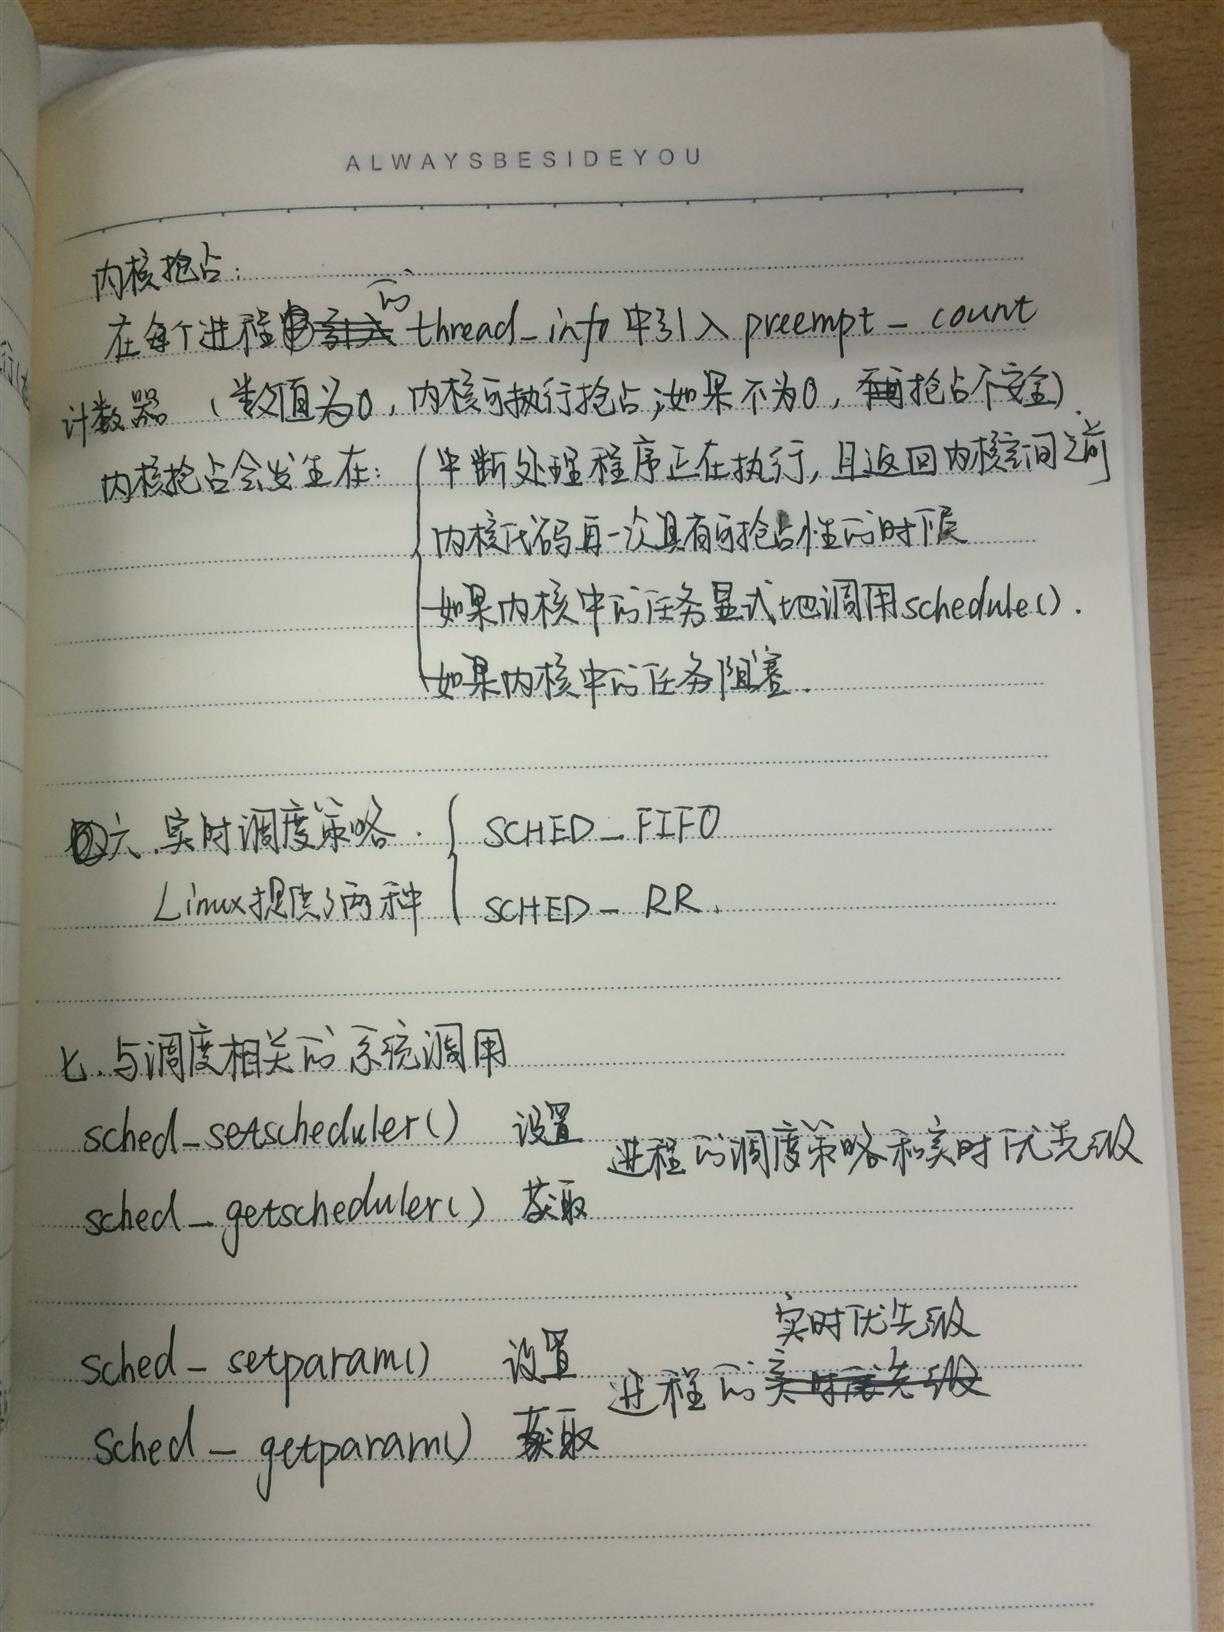 ALWAYSBESIDEYOU
内核抢占:
在每个进程的thread_info中引入preempt_count
计数器（数值为0，内核可执行抢占;如果不为0，抢占不安全).
内核抢占会发生在: 中断处理程序正在执行,且返回内核空间之前
内核代码再一次具有可抢占性的时候
如果内核中的任务显式地调用schedule().
如果内核中的任务阻塞.
六.实时调度策略. SCHED_FIFO
Linux提供了两种 SCHED_RR.
七.与调度相关的系统调用
sched_setscheduler() 设置 进程的调度策略和实时优先级
sched_getscheduler() 获取
实时优先级
sched_setparam() 设置 进程的
sched_getparam() 获取